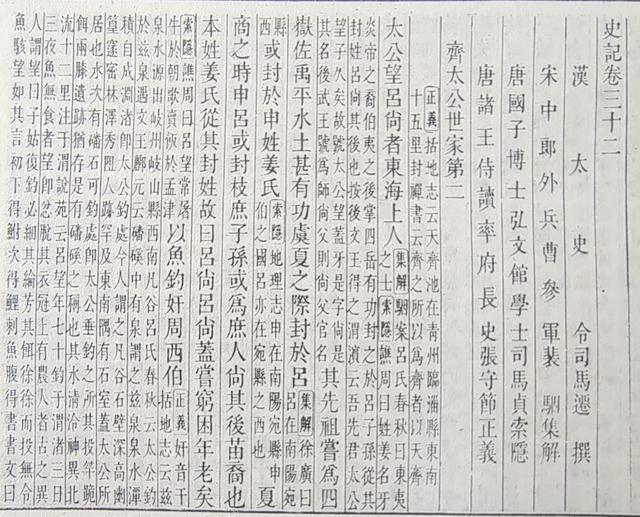 史記卷三十二
漢太史令司馬遷撰
宋中郎外兵曹參軍裴駰集解
唐國子博士弘文館學士司馬貞索隱
唐諸王侍讀率府長史張守節正義
齊太公世家第二
正義括地志云天齊池在青州臨淄縣東南
十五里封禪書云齊之所以為齊者以天齊
太公望呂尚者東海上人集解駰案呂氏春秋曰東夷
之士索隱譙周曰姓姜名牙
炎帝之裔伯夷之後掌四岳有功封之於呂子孫從其
封姓呂尚其後也按後文王得之渭濱云吾先君太公
望子久矣故號太公望蓋牙是字尚是
其名後武王號為師尚父則尚父官名其先祖嘗為四
嶽佐禹平水土甚有功虞夏之際封於呂集解徐廣曰
呂在南陽宛
縣西或封於申姓姜氏索隱地理志申在南陽宛縣申
伯之國呂亦在宛縣之西也夏
商之時申呂或封枝庶子孫或為庶人尚其後苗裔也
本姓姜氏從其封姓故曰呂尚呂尚蓋嘗窮困年老矣
索隱譙周曰呂望嘗屠
牛於朝歌賣飯於孟津以魚釣奸周西伯正義奸音干
括地志云茲
泉水源出岐州岐山縣西南凡谷呂氏春秋云太公釣
於茲泉遇文王酈元云磻磎中有泉謂之茲泉泉水潭
積自成淵渚即太公釣處今人謂之凡谷石壁深高幽
篁邃密林澤秀阻人跡罕及東南隅有石室蓋太公所
居也水次有磻石可釣處即太公垂釣之所其投竿跪
餌兩膝遺跡猶存是有磻磎之稱也其水清泠神異北
流十二里注于渭說苑云呂望年七十釣于渭渚三日
三夜魚無食者望即忿脫其衣冠上有農人者古之異
人謂望曰子姑復釣必細其綸芳其餌徐徐而投無令
魚駭望如其言初下得鮒次得鯉刺魚腹得書書文曰